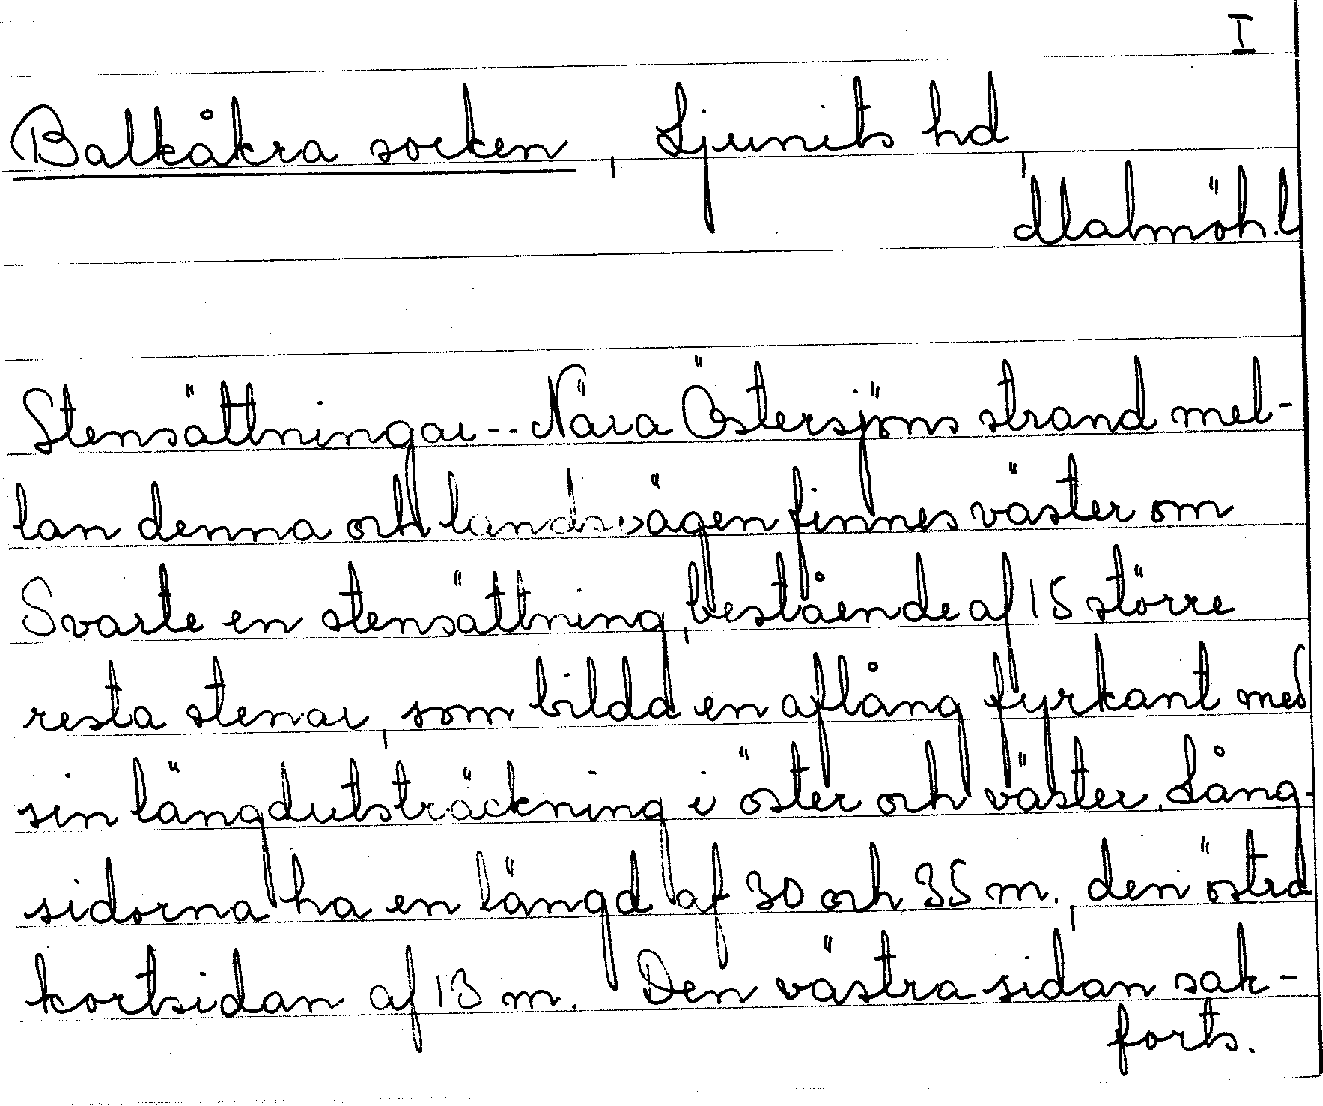 I
Balkåkra socken, Ljunits hd,
Malmöh. l
Stensättningar -- Nära Östersjöns strand mel-
lan denna och landsvägen finnes väster om
Svarte en stensättning, bestående af 15 större
resta stenar, som bilda en aflång fyrkant med
sin längdutsträckning i öster och väster. Lång-
sidorna ha en längd af 30 och 35 m., den östra
kortsidan af 13 m. Den västra sidan sak-
forts.